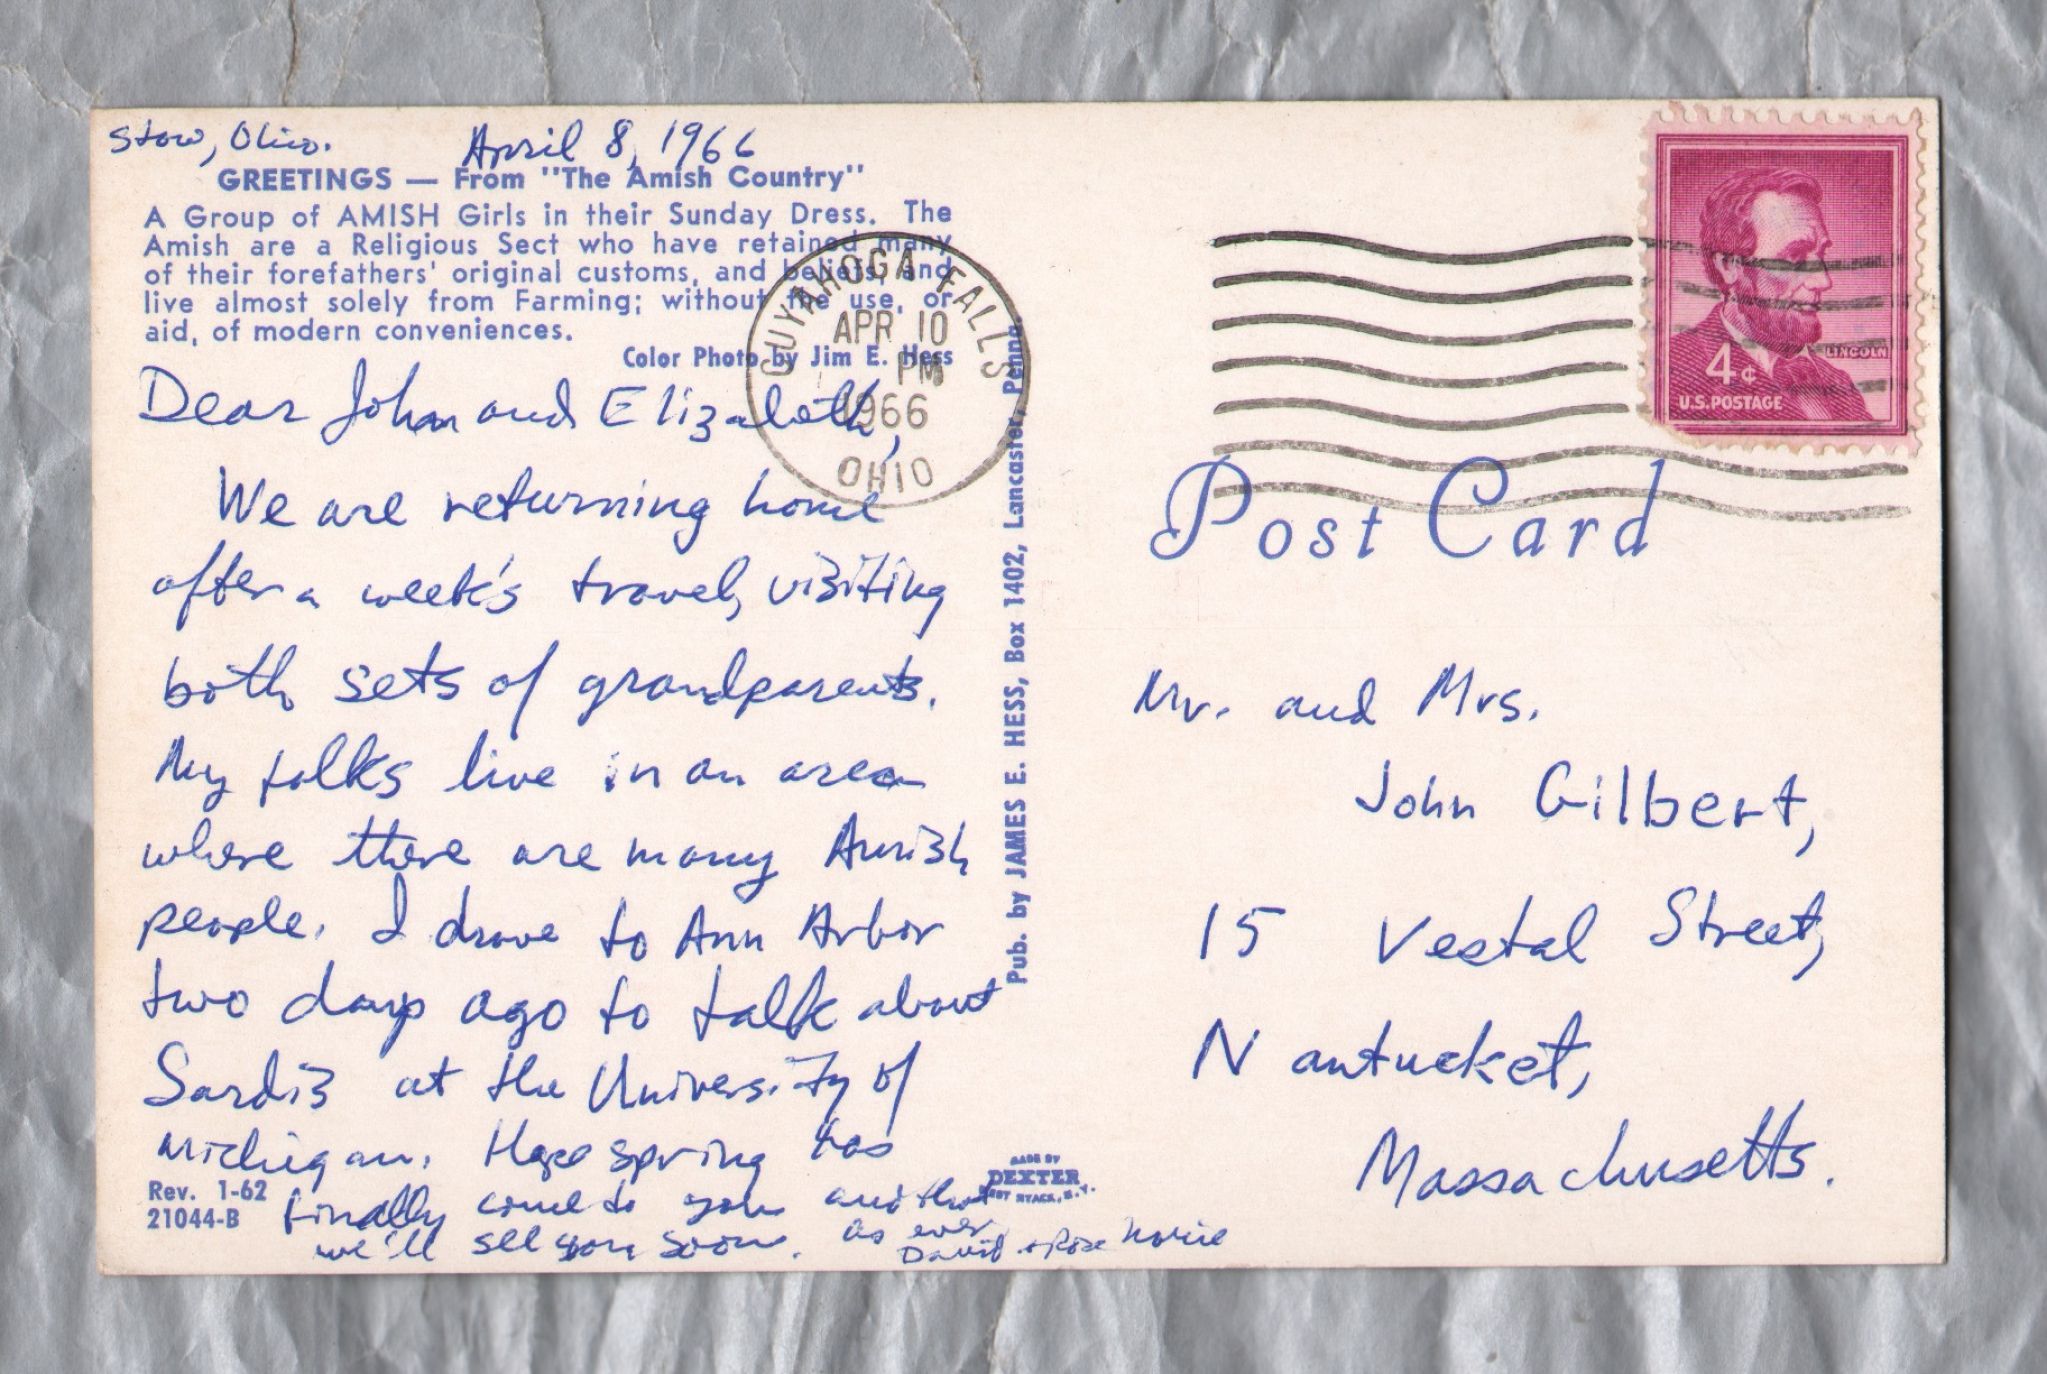 Stow, Ohio. April 8, 1966
GREETINGS — From "The Amish Country"
A Group of AMISH Girls in their Sunday Dress. The
Amish are a Religious Sect who have retained many
of their forefathers' original customs, and beliefs, and
live almost solely from Farming; without the use, or
aid, of modern conveniences.
Color Photo by Jim E. Hess
Dear John and Elizabeth,
We are returning home
after a week's travel, visiting
both sets of grandparents.
My folks live in an area
where there are many Amish
people. I drove to Ann Arbor
two days ago to talk about
Sardis at the University of
Michigan. Hope spring has
finally come to you and that
we'll see you soon. as ever
David + Rose
Rev. 1-62
21044-B
CUYAHOGA FALLS
APR 10
PM
1966
OHIO
Pub. by JAMES E. HESS, Box 1402, Lancaster, Penna.
MADE BY
DEXTER
WEST NYACK, N.Y.
4¢
LINCOLN
U.S. POSTAGE
Post Card
Mr. and Mrs.
John Gilbert,
15 Vestal Street,
Nantucket,
Massachusetts.